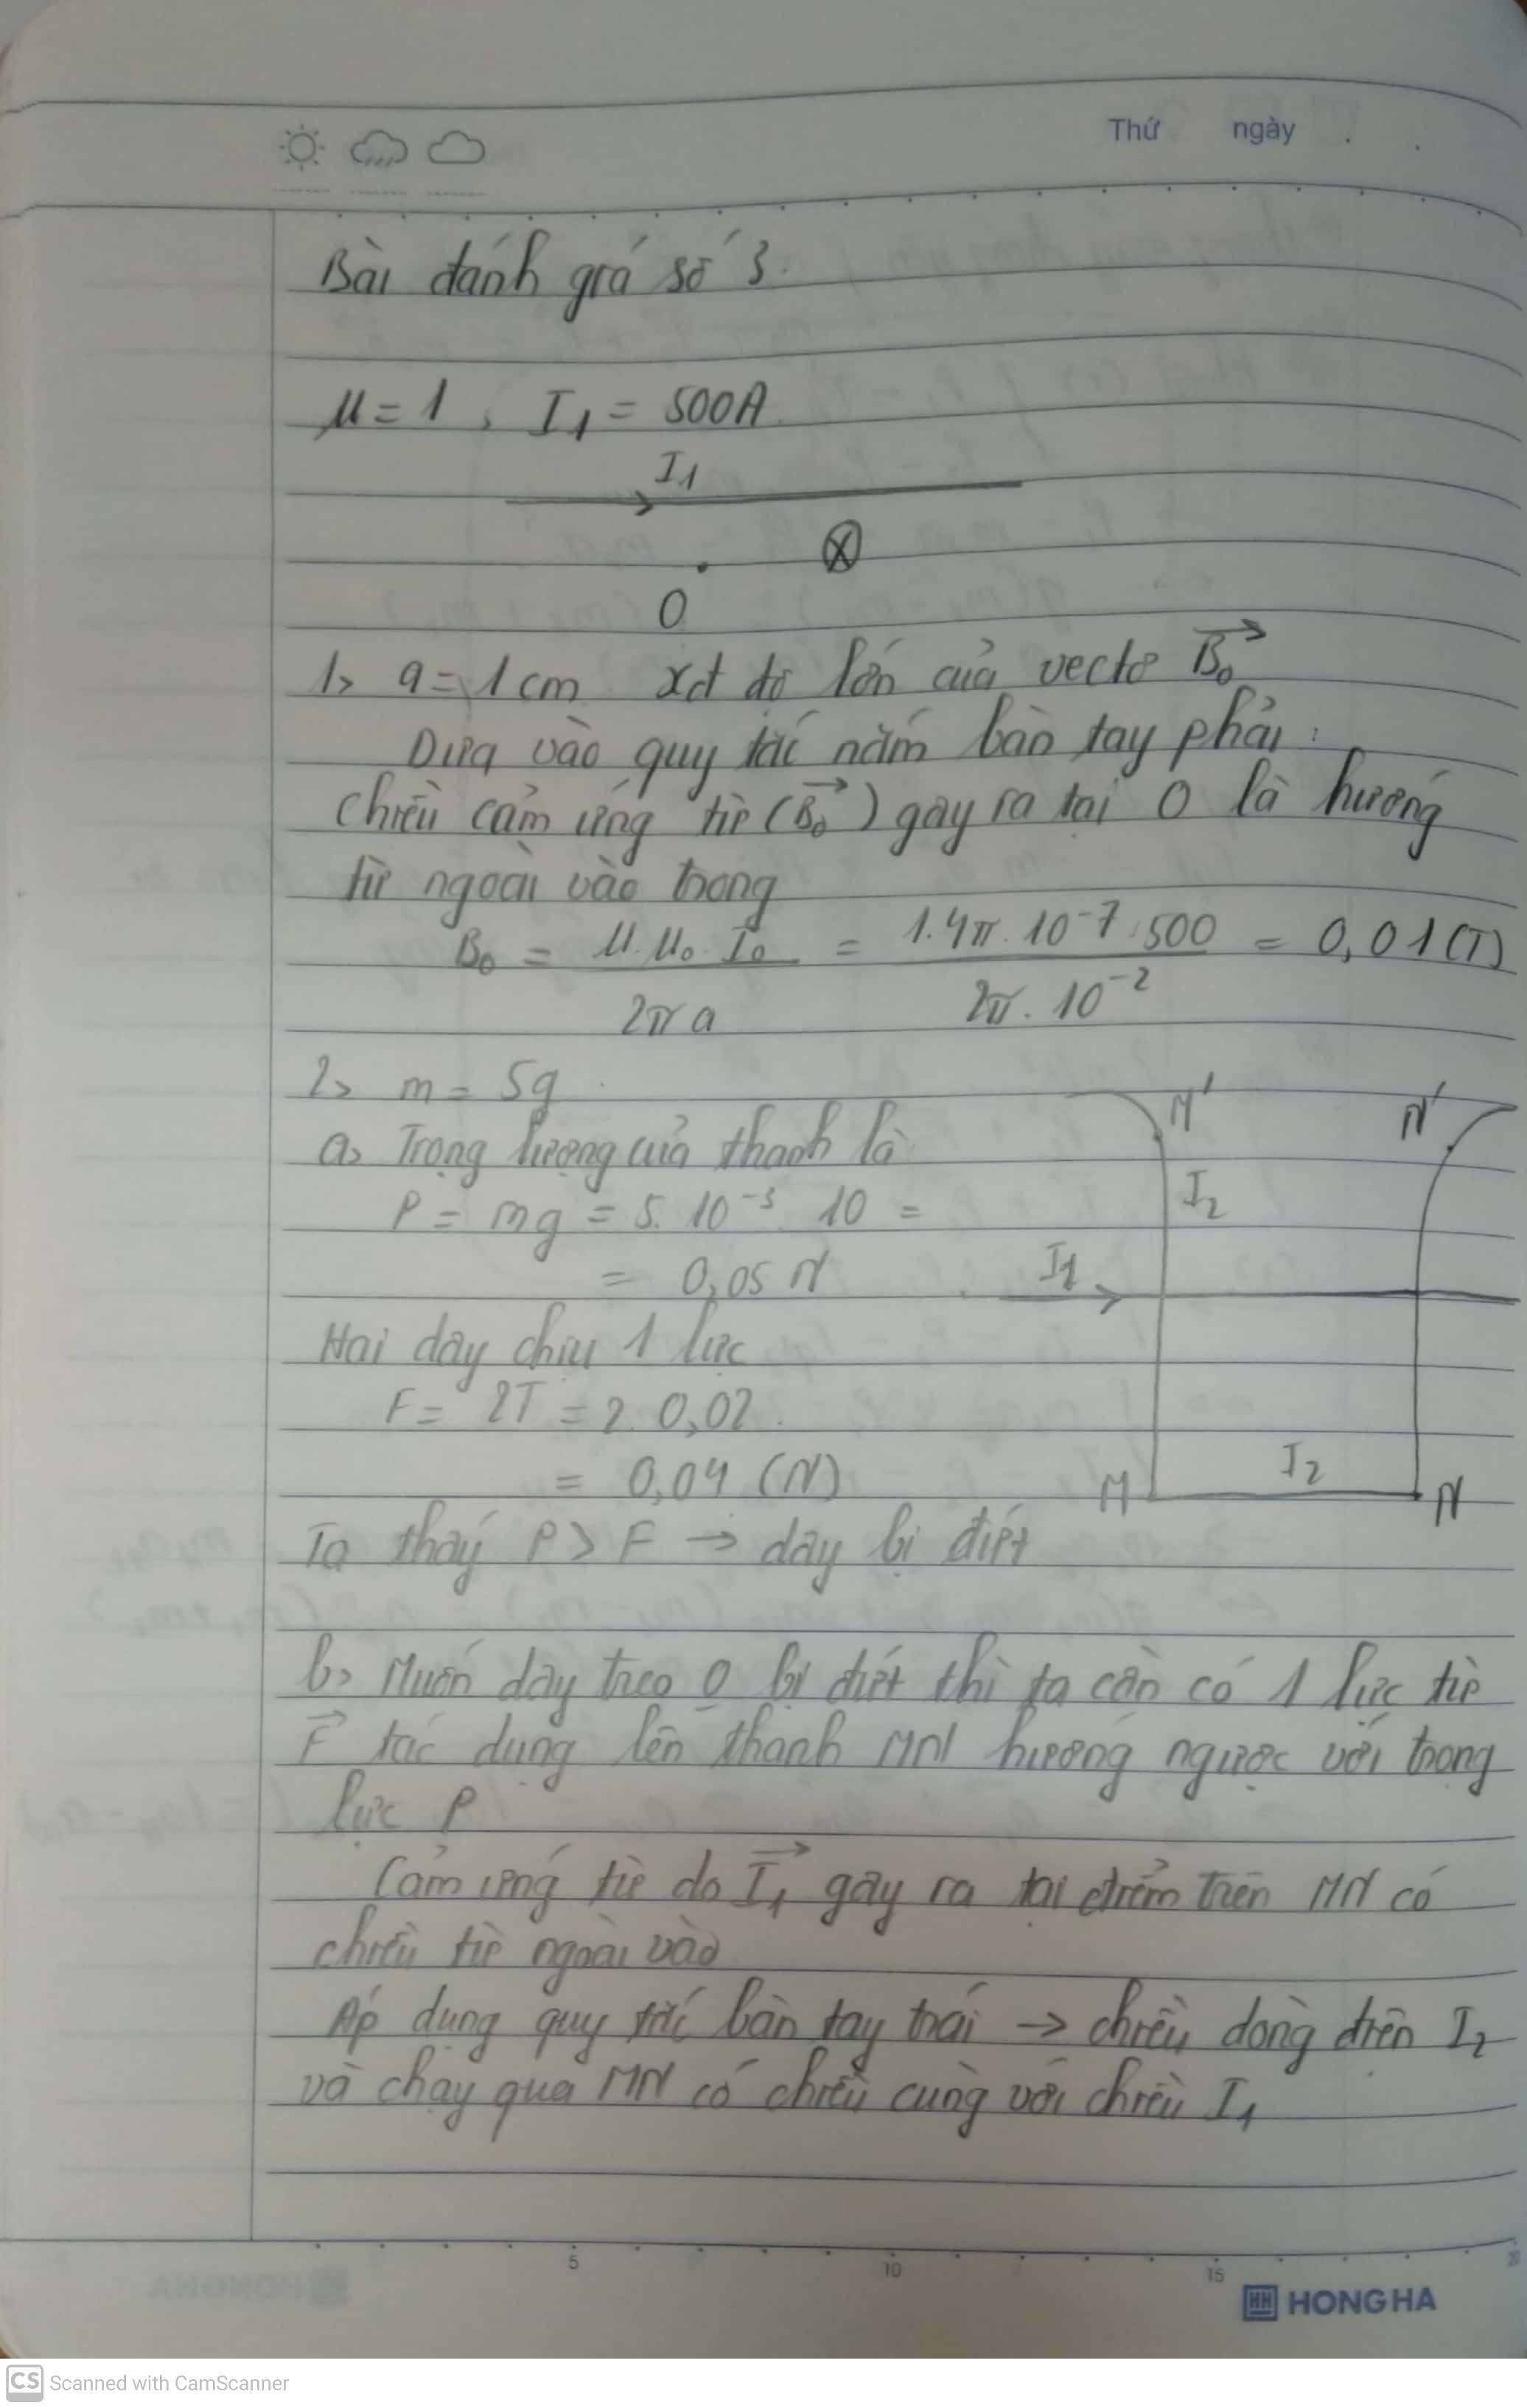 Thứ ngày
Bài đánh giá số 3.
μ = 1, I₁ = 500A
I₁
O
1> a = 1 cm xđ độ lớn của vectơ B₀→
Dựa vào quy tắc nắm bàn tay phải:
chiều cảm ứng từ (B₀→) gây ra tại O là hướng
từ ngoài vào trong
B₀ = μ.μ₀.I₀ / 2πa = 1.4π.10⁻⁷.500 / 2π.10⁻² = 0,01(T)
2> m = 5g
M' N'
a> Trọng lượng của thanh là
I₂
P = mg = 5.10⁻³.10 =
= 0,05 N
I₁
Hai dây chịu 1 lực
F = 2T = 2.0,02
= 0,04 (N)
M I₂ N
Ta thấy P > F → dây bị đứt
b> Muốn dây treo 0 bị đứt thì ta cần có 1 lực từ
F→ tác dụng lên thanh MN hướng ngược với trọng
lực P
Cảm ứng từ do I₁→ gây ra tại điểm trên MN có
chiều từ ngoài vào
Áp dụng quy tắc bàn tay trái → chiều dòng điện I₂
và chạy qua MN có chiều cùng với chiều I₁
5 10 15 20
HH HONG HA
CS Scanned with CamScanner